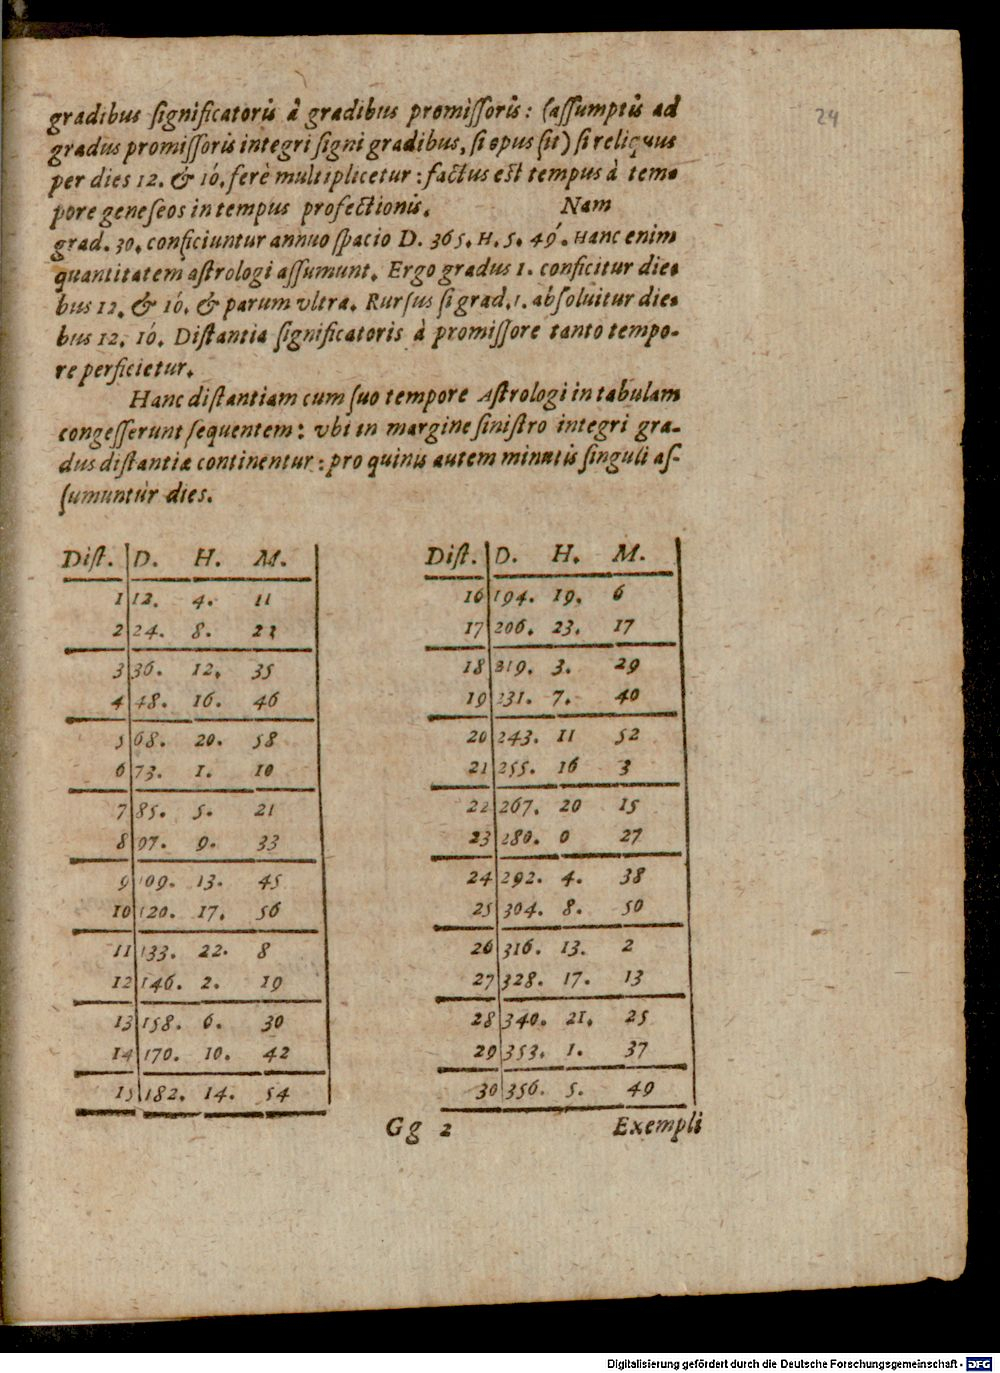 24
gradibus significatoris à gradibus promissoris: (assumptis ad
gradus promissoris integri signi gradibus, si opus sit) si reliquus
per dies 12. & 10́. ferè multiplicetur : factus est tempus à tem-
pore geneseos in tempus profectionis. Nam
grad. 30. conficiuntur annuo spacio D. 365. H. 5. 49́. Hanc enim
quantitatem astrologi assumunt. Ergo gradus 1. conficitur die-
bus 12. & 10́. & parum vltra. Rursus si grad. 1. absoluitur die-
bus 12. 10́. Distantia significatoris à promissore tanto tempo-
re perficietur.
Hanc distantiam cum suo tempore Astrologi in tabulam
congesserunt sequentem: vbi in margine sinistro integri gra-
dus distantiæ continentur : pro quinis autem minutis singuli as-
sumuntur dies.
Dist. D. H. M.
1 12. 4. 11
2 24. 8. 23
3 36. 12. 35
4 48. 16. 46
5 68. 20. 58
6 73. 1. 10
7 85. 5. 21
8 97. 9. 33
9 109. 13. 45
10 120. 17. 56
11 133. 22. 8
12 146. 2. 19
13 158. 6. 30
14 170. 10. 42
15 182. 14. 54
Dist. D. H. M.
16 194. 19. 6
17 206. 23. 17
18 219. 3. 29
19 231. 7. 40
20 243. 11 52
21 255. 16 3
22 267. 20 15
23 280. 0 27
24 292. 4. 38
25 304. 8. 50
26 316. 13. 2
27 328. 17. 13
28 340. 21. 25
29 353. 1. 37
30 356. 5. 49
Gg 2 Exempli
Digitalisierung gefördert durch die Deutsche Forschungsgemeinschaft - DFG